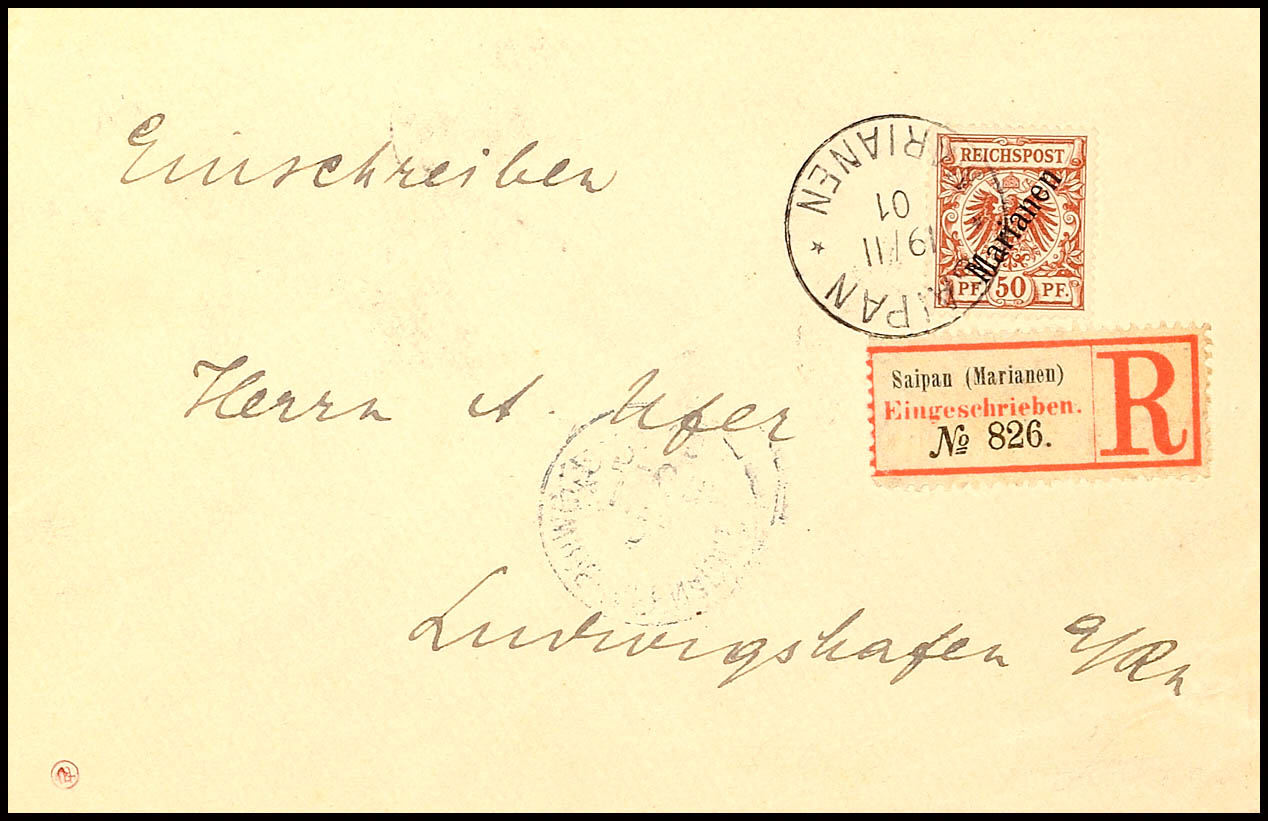 Einschreiben
MARIANEN
01
19/11
REICHSPOST
Marianen
PF 50 PF.
Saipan (Marianen)
Eingeschrieben.
№ 826.
R
Herrn A. Ufer
Ludwigshafen a/Rh